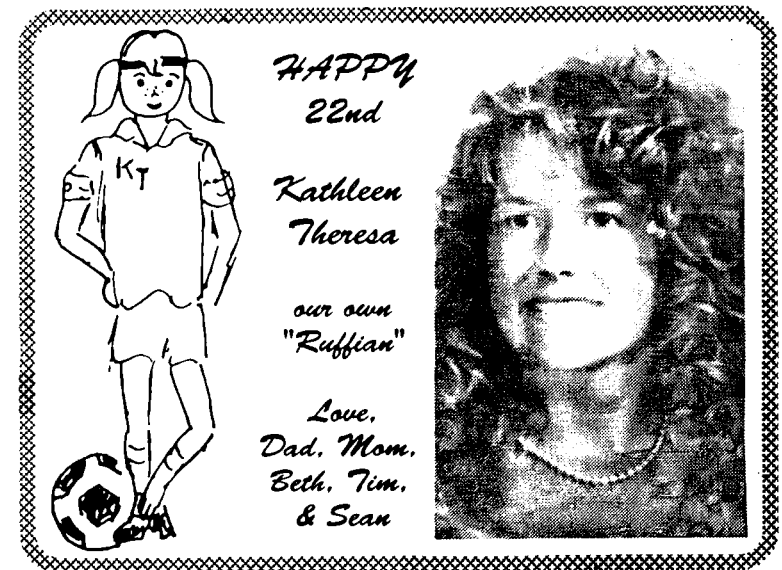 HAPPY
22nd
Kathleen
Theresa
our own
"Ruffian"
Love,
Dad, Mom,
Beth, Tim,
& Sean
KT